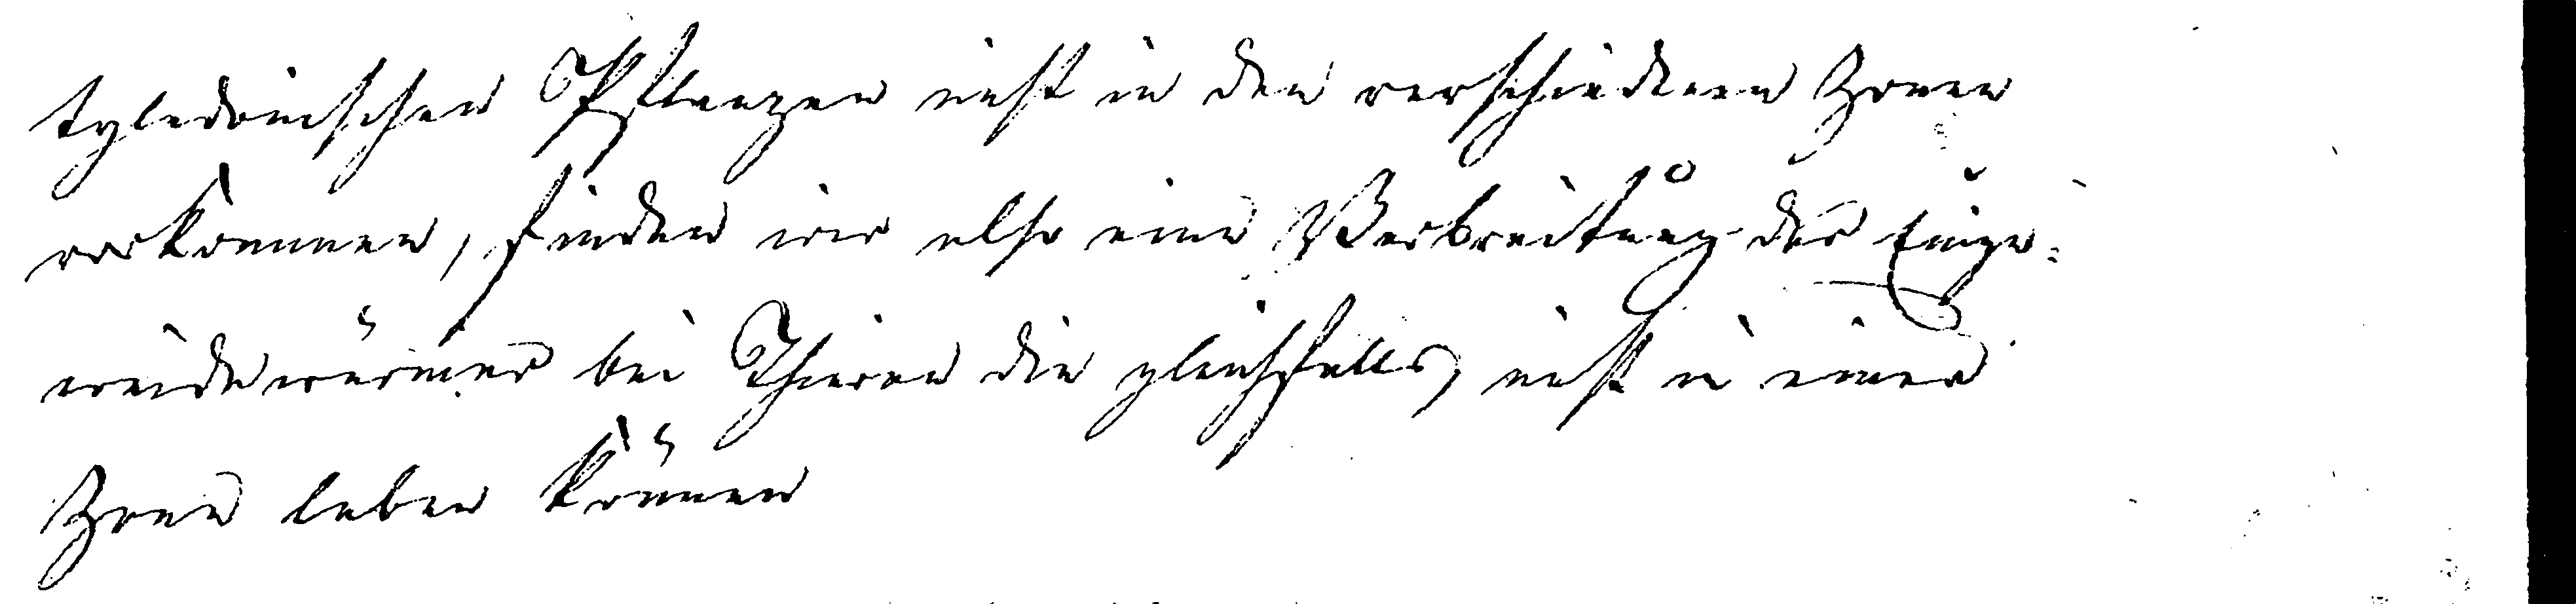 tyledonischen Pflanzen nicht in den verschiedenen Zonen
vorkommen, finden wir also eine Verbreitung der Einge-
weidewürmer bei Thieren die gleichfalls nicht in einer
Zone leben können